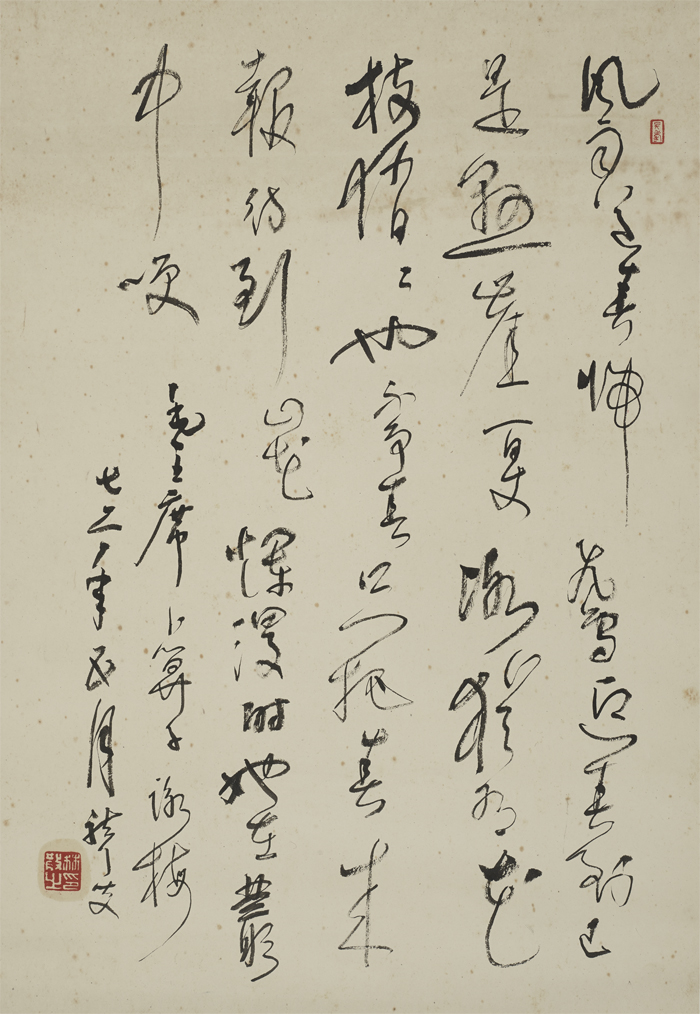 风雨送春歸飛雪迎春到已
是懸崖百丈冰猶有花
枝俏〻也不争春只把春来
報待到山花爛漫时她在叢
中咲
毛主席卜算子詠梅
七二年五月
林印散之